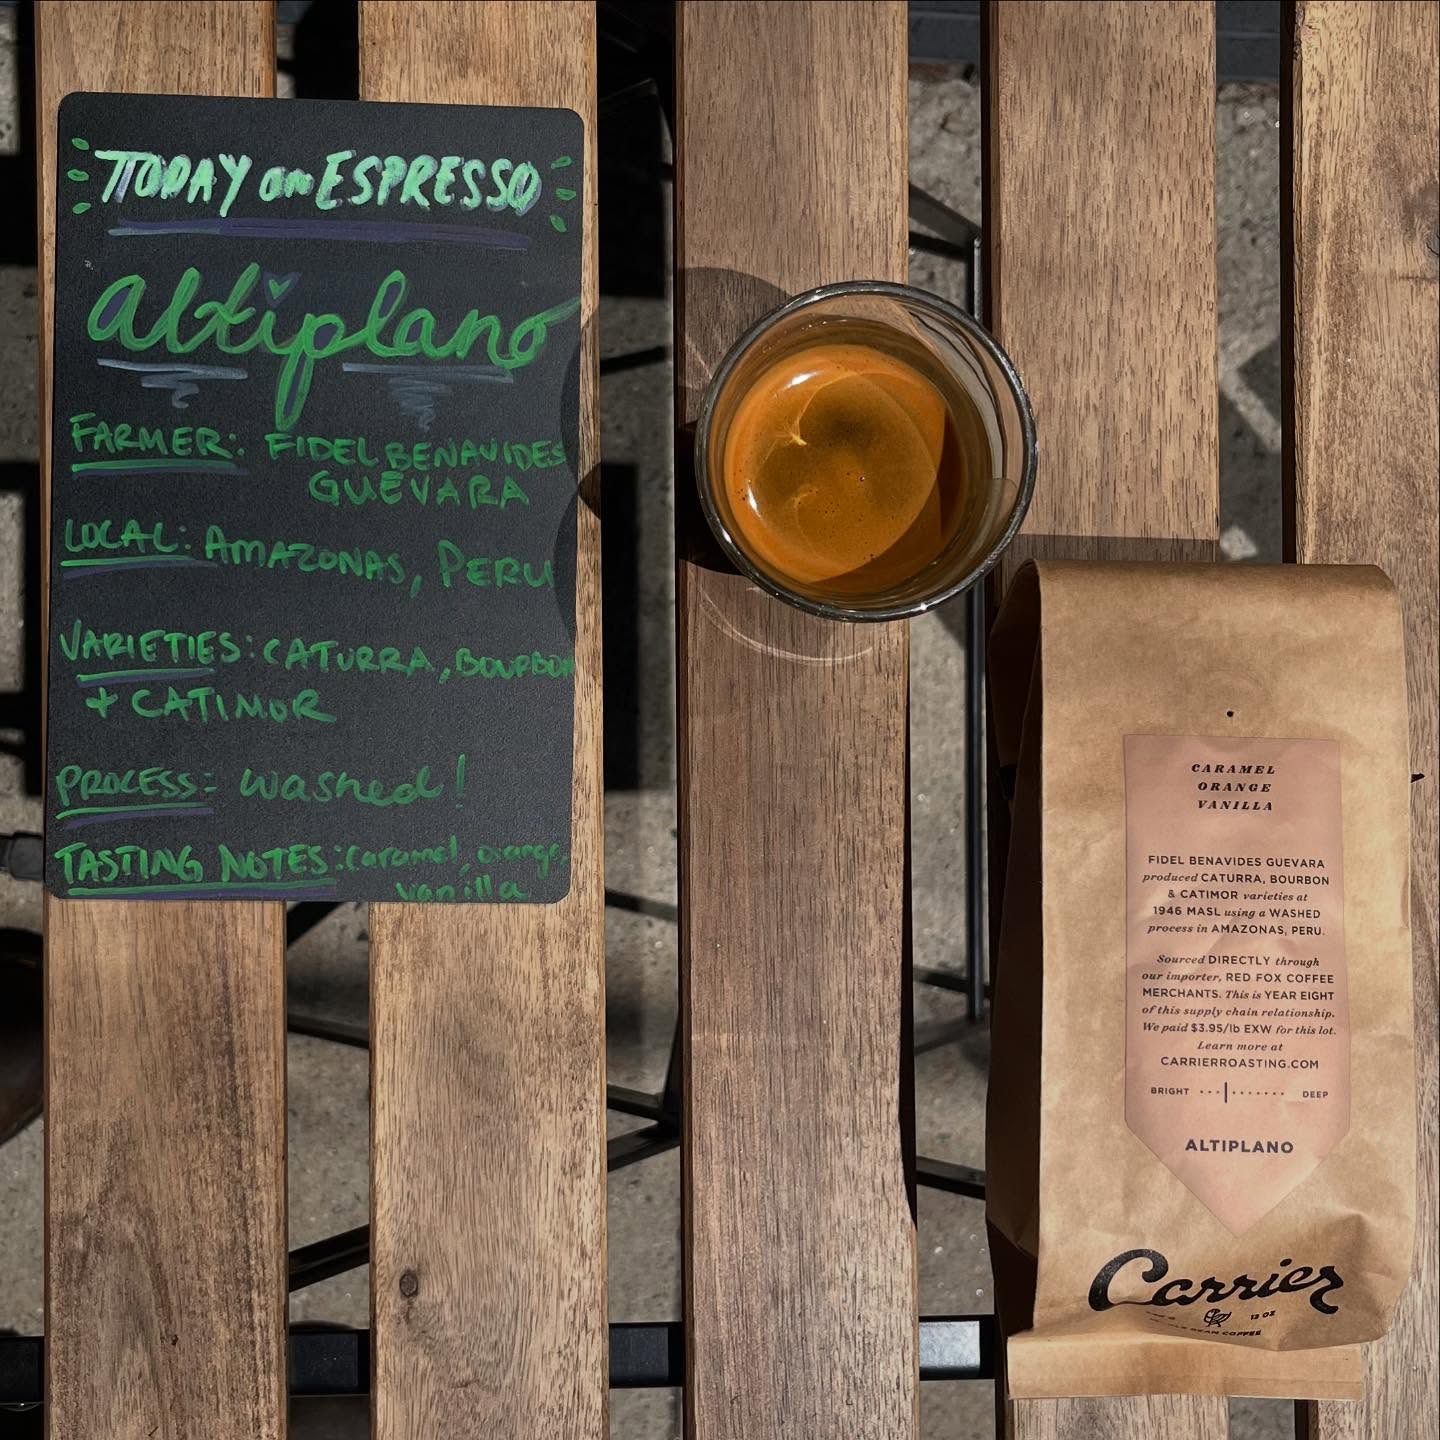 TODAY on ESPRESSO
altiplano
FARMER: FIDEL BENAVIDES
GUEVARA
LOCAL: AMAZONAS, PERU
VARIETIES: CATURRA, BOURBON
& CATIMOR
PROCESS: washed!
TASTING NOTES: caramel, orange,
vanilla
CARAMEL
ORANGE
VANILLA
FIDEL BENAVIDES GUEVARA
produced CATURRA, BOURBON
& CATIMOR varieties at
1946 MASL using a WASHED
process in AMAZONAS, PERU.
Sourced DIRECTLY through
our importer, RED FOX COFFEE
MERCHANTS. This is YEAR EIGHT
of this supply chain relationship.
We paid $3.95/lb EXW for this lot.
Learn more at
CARRIERROASTING.COM
BRIGHT DEEP
ALTIPLANO
Carrier
12 OZ
BEAN COFFEE